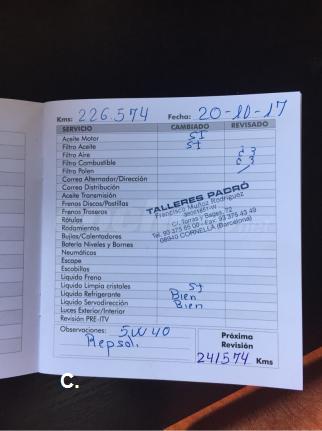 Kms: 226.574 Fecha: 20-10-17
SERVICIO CAMBIADO REVISADO
Aceite Motor SI
Filtro Aceite SI
Filtro Aire
Filtro Combustible
Filtro Polen
Correa Alternador/Dirección
Correa Distribución
Aceite Transmisión
Frenos Discos/Pastillas
Frenos Traseros
Rótulas
Rodamientos
Bujías/Calentadores
Batería Niveles y Bornes
Neumáticos
Escape
Escobillas
Liquido Freno
Liquido Limpia cristales SI
Liquido Refrigerante Bien
Liquido Servodirección Bien
Luces Exterior/Interior
Revisión PRE-ITV
TALLERES PADRÓ
Francisco Muñoz Rodríguez
C/. Torras y Bages, 72
Tel. 93 375 65 00 - Fax. 93 375 43 49
08940 CORNELLÀ (Barcelona)
Observaciones: 5W40
Repsol.
Próxima
Revisión
241574 Kms
C.